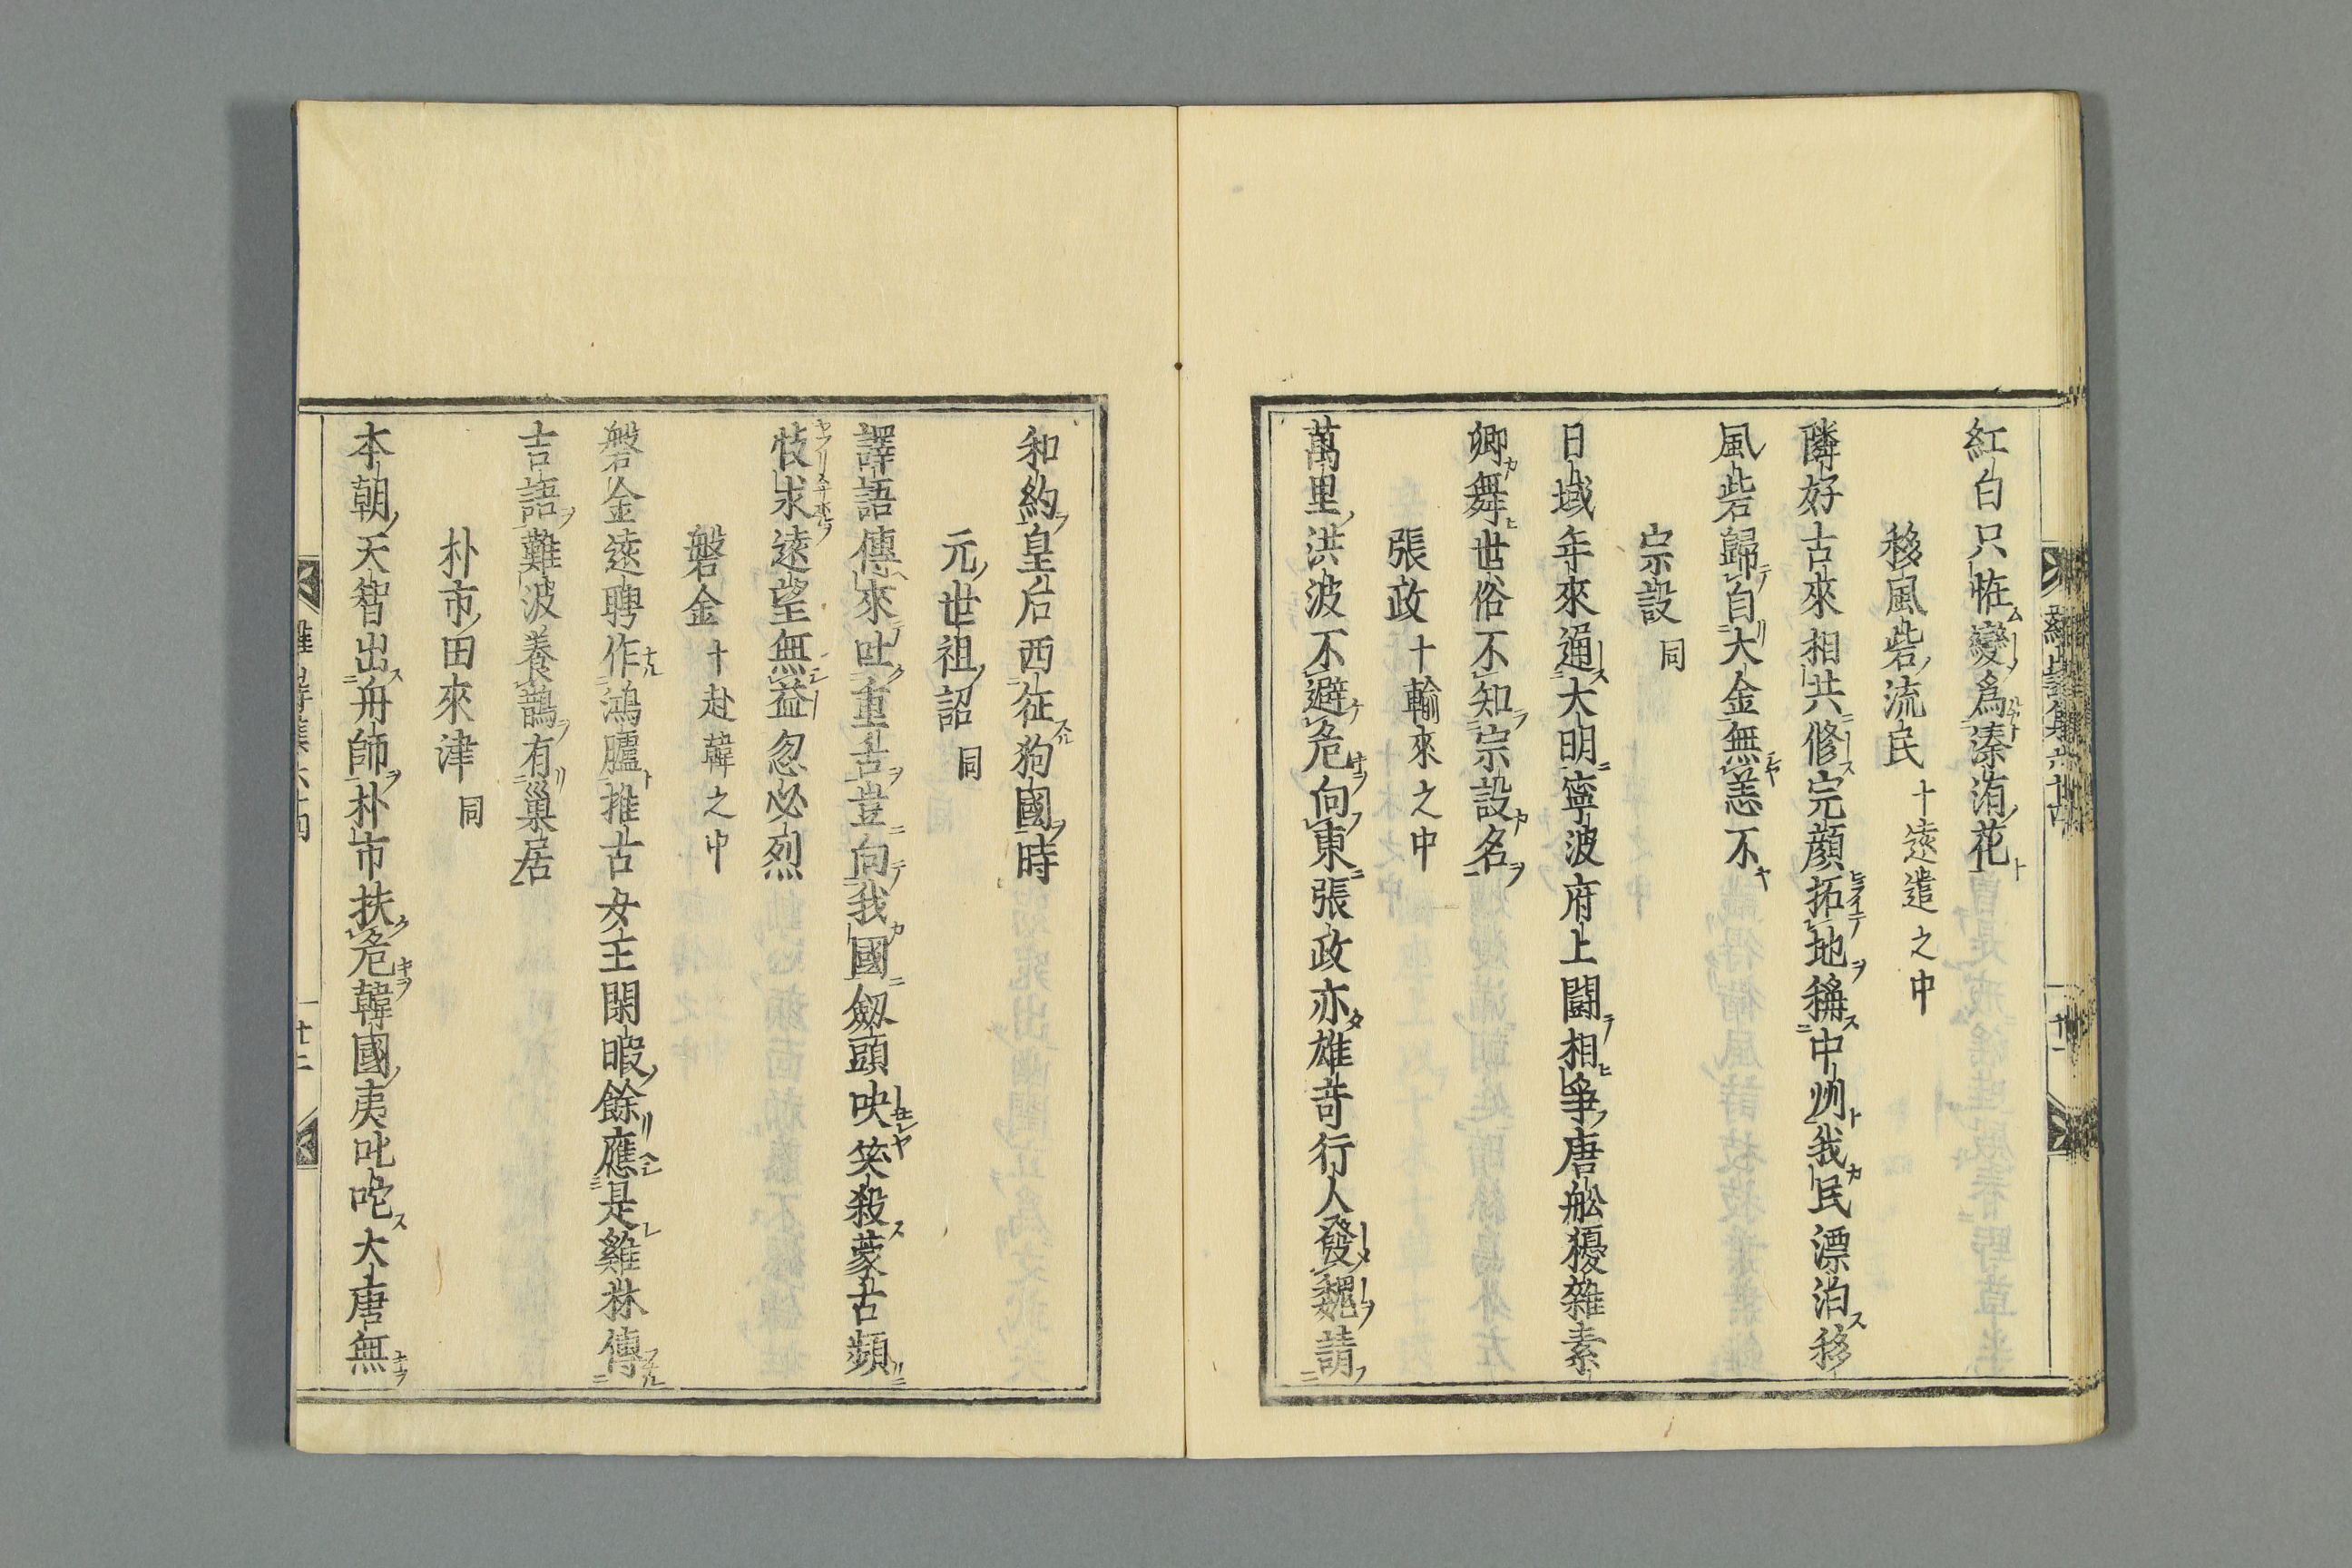 紅白只恠變為溱洧花
移風砦流民 十遠遣之中
隣好古來相共修完顏拓地稱中州我民漂泊移
風砦歸自大金無恙不
宗設 同
日域年來通大明寧波府上鬪相爭唐舩擾雜素
卿舞世俗不知宗設名
張政 十輸來之中
萬里洪波不避危向東張政亦雄奇行人發魏請
和約皇后西征狗國時
元世祖詔 同
譯語傳來吐重舌豈向我國劔頭吷笑殺蒙古頻
忮求遠望無益忽必烈
磐金 十赴韓之中
磐金遠聘作鴻臚推古女主閑暇餘應是雞林傳
吉語難波養鵲有巢居
朴市田來津 同
本朝天智出舟師朴市扶危韓國夷叱咤大唐無